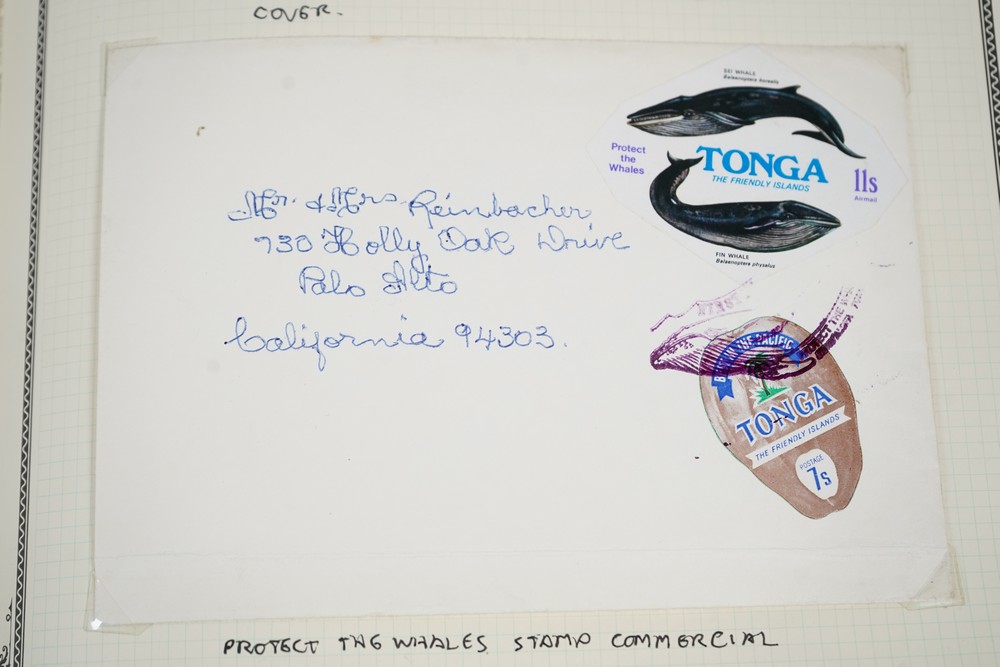 COVER.
SEI WHALE
Balaenoptera borealis
Protect
the
Whales
TONGA
THE FRIENDLY ISLANDS
11s
Airmail
FIN WHALE
Balaenoptera physalus
Mr. & Mrs Reinbacher
930 Holly Oak Drive
Palo Alto
California 94303.
THE PACIFIC
TONGA
THE FRIENDLY ISLANDS
POSTAGE
7s
PROTECT THE WHALES STAMP COMMERCIAL